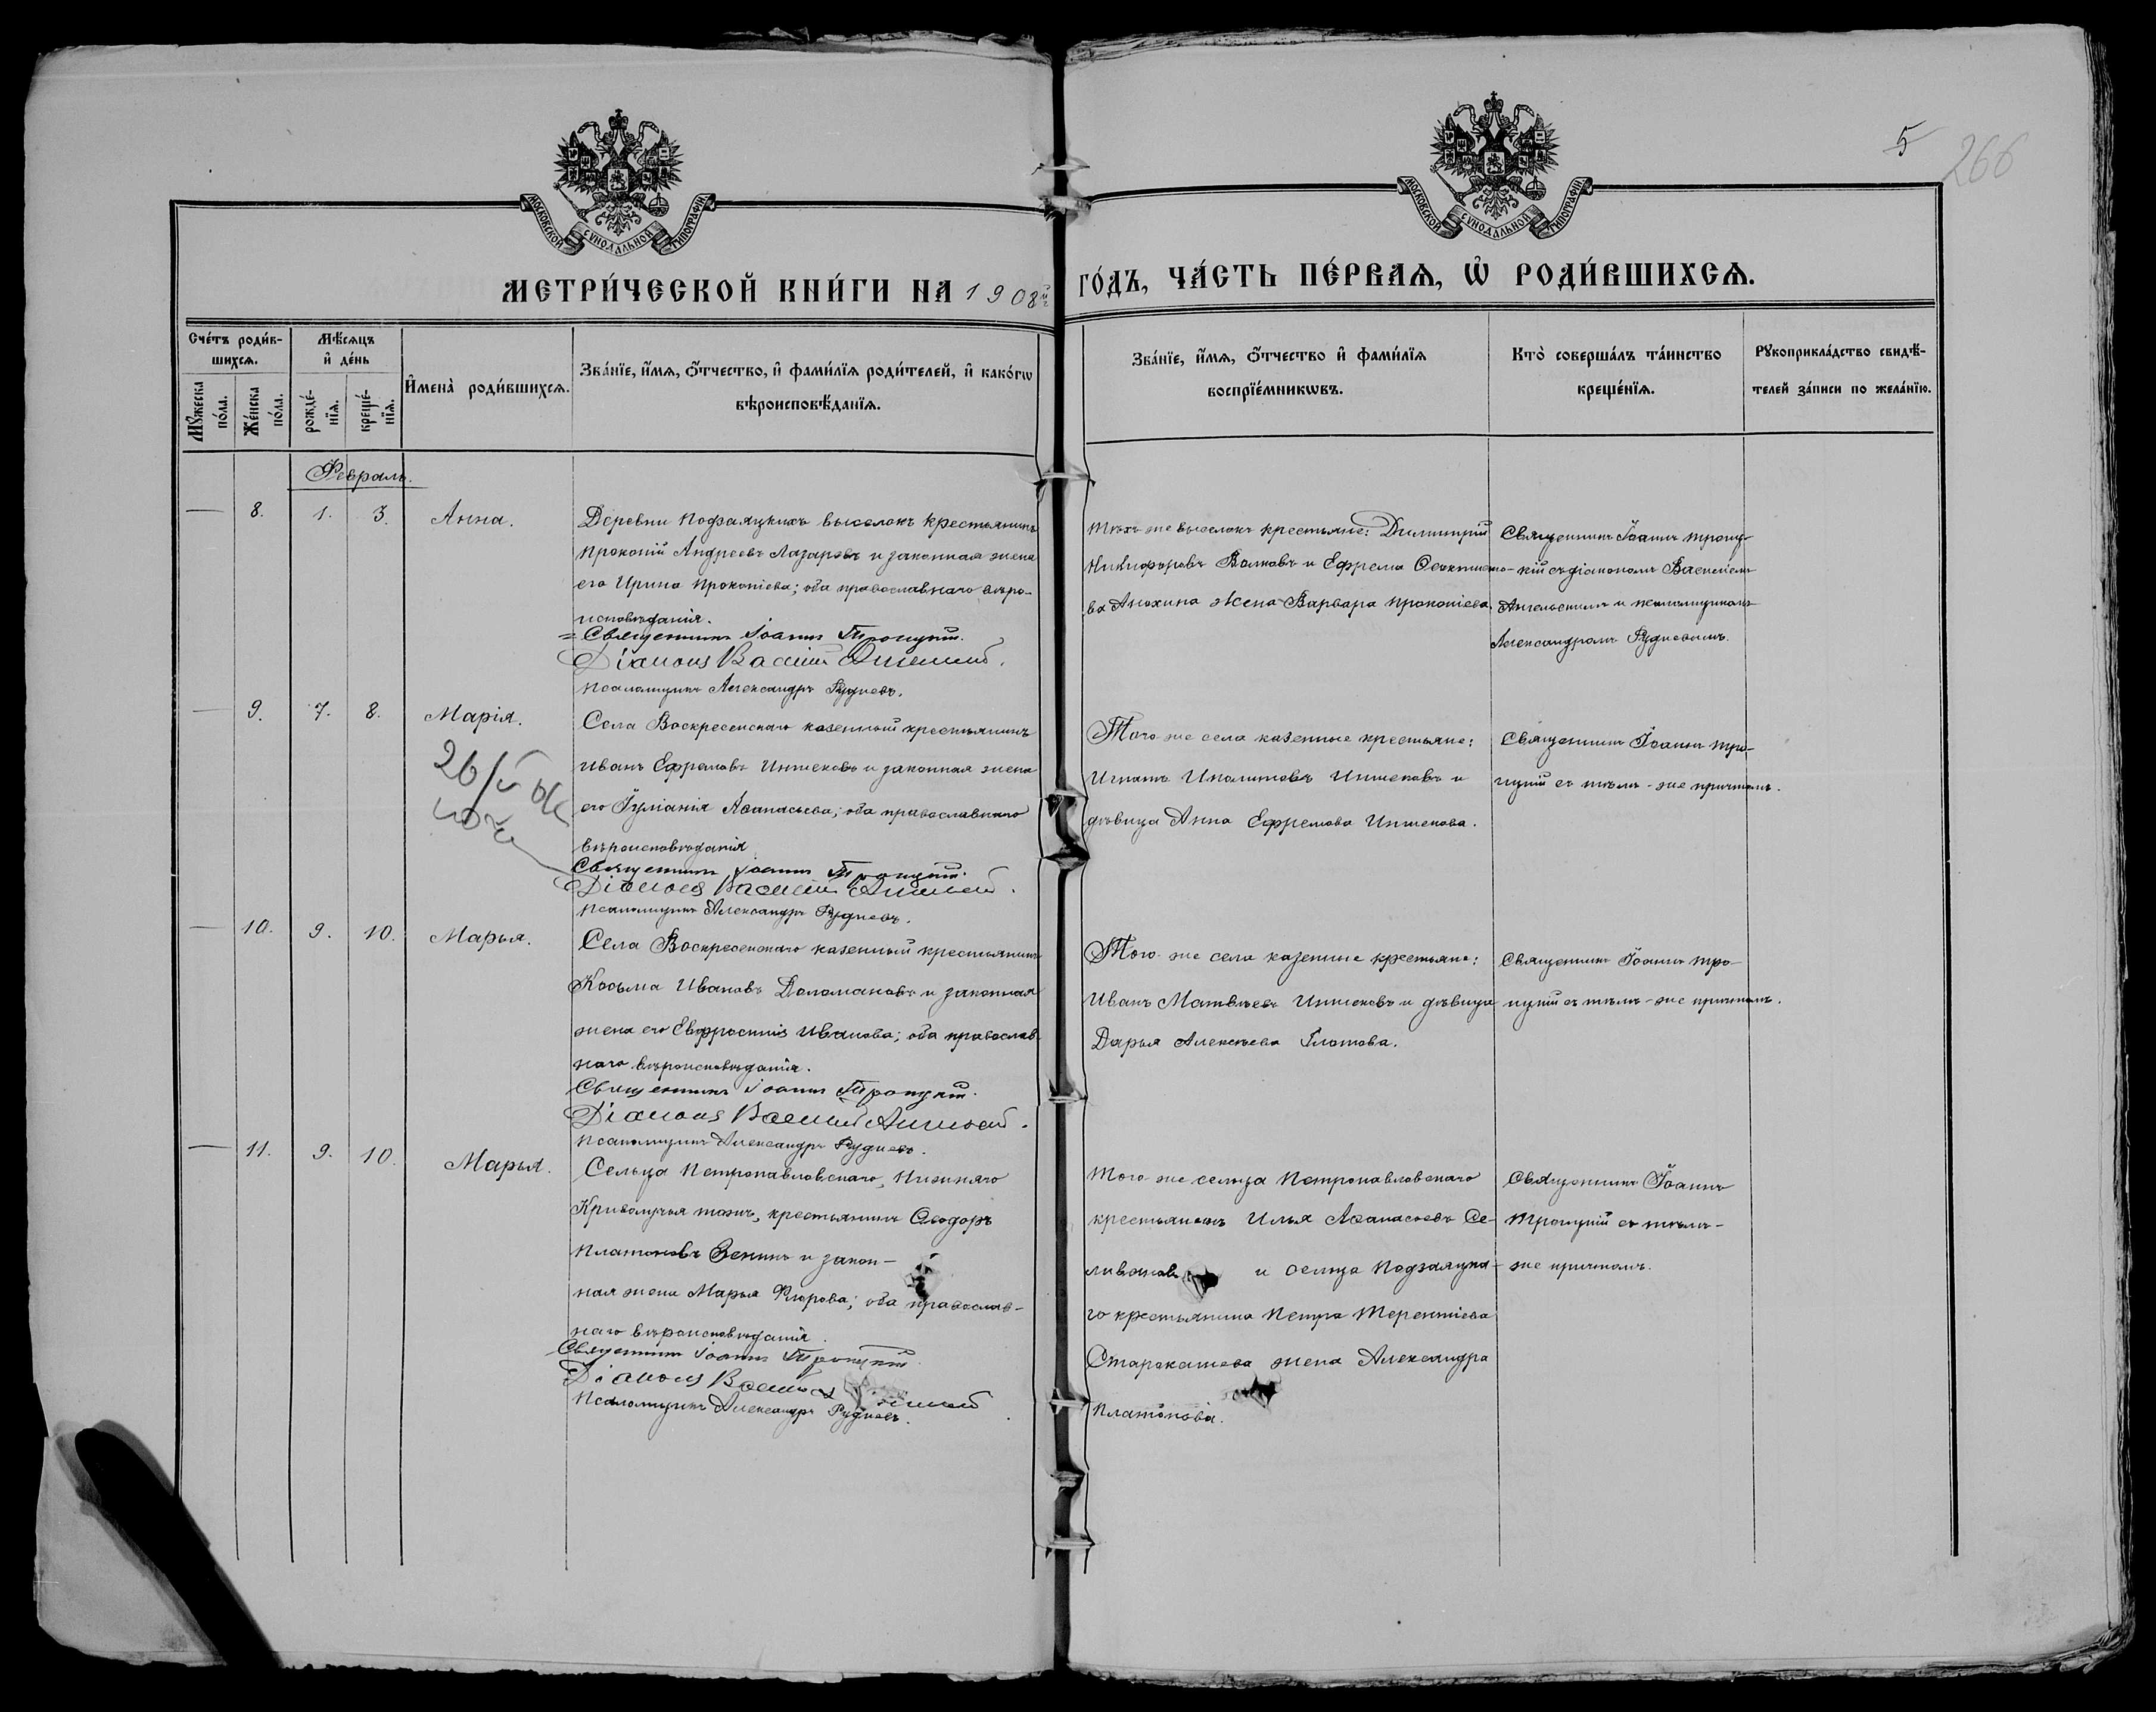 5
266
МОСКОВСКОЙ СѴНОДАЛЬНОЙ ТИПОГРАФІИ.
МОСКОВСКОЙ СѴНОДАЛЬНОЙ ТИПОГРАФІИ.
МЕТРИ́ЧЕСКОЙ КНИ́ГИ НА 1908й
ГО́ДЪ, ЧА́СТЬ ПЕ́РВАѦ, Ѡ҆ РОДИ́ВШИХСѦ.
Сче́тъ роди́в-
шихсѧ.
Мꙋ́жеска по́ла.
Же́нска по́ла.
Мѣ́сѧцъ
и҆ де́нь
рожде́-
нїѧ.
креще́-
нїѧ.
И҆мена̀ роди́вшихсѧ.
Зва́нїе, и҆́мѧ, ѻ҆́тчество, и҆ фами́лїѧ роди́телей, и҆ како́гѡ
вѣроисповѣ́данїѧ.
Зва́нїе, и҆́мѧ, ѻ҆́тчество и҆ фами́лїѧ
воспрїе́мникѡвъ.
Кто̀ соверша́лъ та́инство
креще́нїѧ.
Рꙋкоприкла́дство свидѣ́-
телей за́писи по жела́нїю.
Февраль.
— 8. 1. 3. Анна.
Деревни Подзаяцкихъ выселокъ крестьянинъ
Прокопій Андреевъ Лазаревъ и законная жена
его Ирина Прокопіева; оба православнаго вѣро-
исповѣданія.
Священникъ Іоаннъ Троицкій.
Діаконъ Василій
Псаломщикъ Александръ Рудневъ.
Тѣхъ же выселокъ крестьяне: Димитрій
Никифоровъ Волковъ и Ефрема Ѳеоктисто-
ва Анохина жена Варвара Прокопіева.
Священникъ Іоаннъ Троиц-
кій съ діакономъ Василіемъ
и псаломщикомъ
Александромъ Рудневымъ.
— 9. 7. 8. Марія.
26/V
Села Воскресенскаго казенный крестьянинъ
Иванъ Ефремовъ Иншековъ и законная жена
его Іуліанія Аѳанасьева; оба православнаго
вѣроисповѣданія
Священникъ Іоаннъ Троицкій.
Діаконъ Василій
Псаломщикъ Александръ Рудневъ.
Того же села казенные крестьяне:
Игнатъ Иполитовъ Иншековъ и
дѣвица Анна Ефремова Иншекова.
Священникъ Іоаннъ Тро-
ицкій съ тѣмъ-же причтомъ.
— 10. 9. 10. Марья.
Села Воскресенскаго казенный крестьянинъ
Косьма Ивановъ Доломановъ и законная
жена его Евфросинія Иванова; оба православ-
наго вѣроисповѣданія.
Священникъ Іоаннъ Троицкій.
Діаконъ Василій
Псаломщикъ Александръ Рудневъ.
Того же села казенные крестьяне:
Иванъ Матвѣевъ Иншековъ и дѣвица
Дарья Алексѣева Глотова.
Священникъ Іоаннъ Тро-
ицкій съ тѣмъ-же причтомъ.
— 11. 9. 10. Марья.
Сельца Петропавловскаго, Нижняго
Криволучья тожъ, крестьянинъ Ѳеодоръ
Платоновъ Зенинъ и закон-
ная жена Марья; оба православ-
наго вѣроисповѣданія.
Священникъ Іоаннъ Троицкій
Діаконъ Василій
Псаломщикъ Александръ Рудневъ.
Того же сельца Петропавловскаго
крестьянинъ Илья Аѳанасьевъ Се-
ливановъ и сельца Подзаяцка-
го крестьянина Петра Терентіева
Старокашева жена Александра
Платонова.
Священникъ Іоаннъ
Троицкій съ тѣмъ-
же причтомъ.